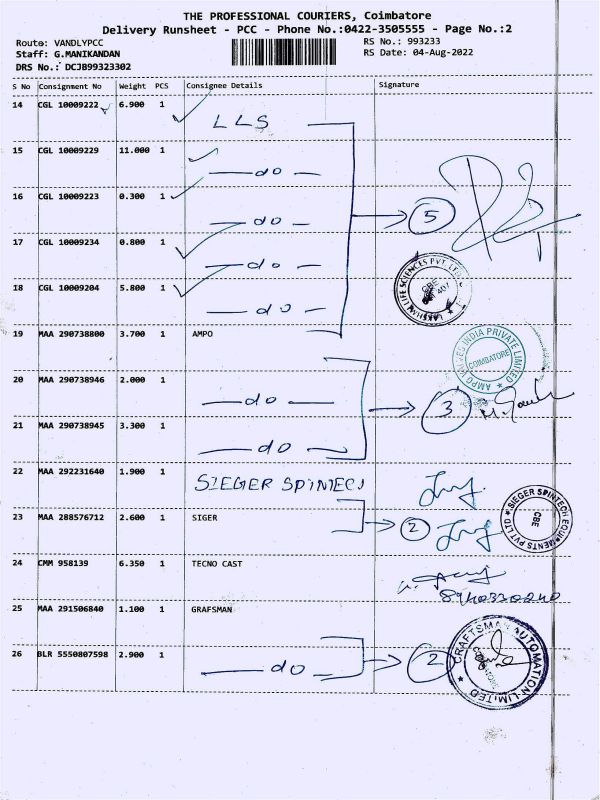 THE PROFESSIONAL COURIERS, Coimbatore
Delivery Runsheet - PCC - Phone No.:0422-3505555 - Page No.:2
Route: VANDLYPCC
RS No.: 993233
Staff: G.MANIKANDAN
RS Date: 04-Aug-2022
DRS No.: DCJB99323302
S No Consignment No Weight PCS Consignee Details Signature
14 CGL 10009222 6.900 1 LLS
15 CGL 10009229 11.000 1 do
16 CGL 10009223 0.300 1 do
5
17 CGL 10009234 0.800 1 do
18 CGL 10009204 5.800 1 do
LAKSHMI LIFE SCIENCES PVT LTD
CBE
19 MAA 290738800 3.700 1 AMPO
AMPO VALVES INDIA PRIVATE LIMITED
COIMBATORE
20 MAA 290738946 2.000 1 do
3
21 MAA 290738945 3.300 1 do
22 MAA 292231640 1.900 1 SIEGER SPINTECH
SIEGER SPINTECH EQUIPMENTS PVT LTD
CBE
23 MAA 288576712 2.600 1 SIGER
2
24 CMM 958139 6.350 1 TECNO CAST
8940330240
25 MAA 291506840 1.100 1 GRAFSMAN
26 BLR 5550807598 2.900 1 do
2
CRAFTSMAN AUTOMATION LIMITED